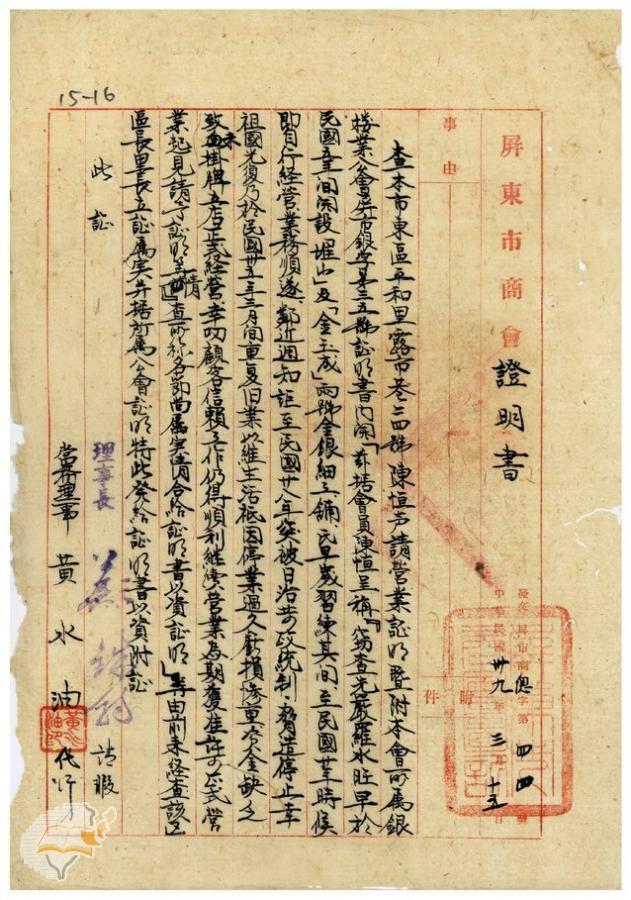 15-16
屏東市商會 證明書
事由
時
件
中華民國卅九年三月十五日
字第四四號
查本市東區平和里露市巷二四號陳恒声請營業証明暨附本會所屬銀
樓業公會屏市銀字第三五號証明書內開「茲据會員陳恒呈稱「竊查先嚴羅水旺早於
民國五年间開設「堆山」及「金玉成」兩號金銀細工舖、氏早歲習練其间、至民國廿三時候
即自行經營、業務順遂、鄰近週知詎至民國廿八年突被日治茍政統制、脅遭停止幸
祖國光復乃於民國卅五年三月间重复旧業以維生活祇因停業過久虧損慘重資金缺乏
致未面掛牌立店正式經營幸叨顧客信賴工作仍得順利継續營業為期獲准許可正式營
業起見請予証明等情」查所称各節尚属实情合給証明書以資証明」等由前来経查該区
區長里長立証属実并据所属公會証明特此発給証明書以資附証
此証
理事長 請暇
常務理事 黃水油 代行